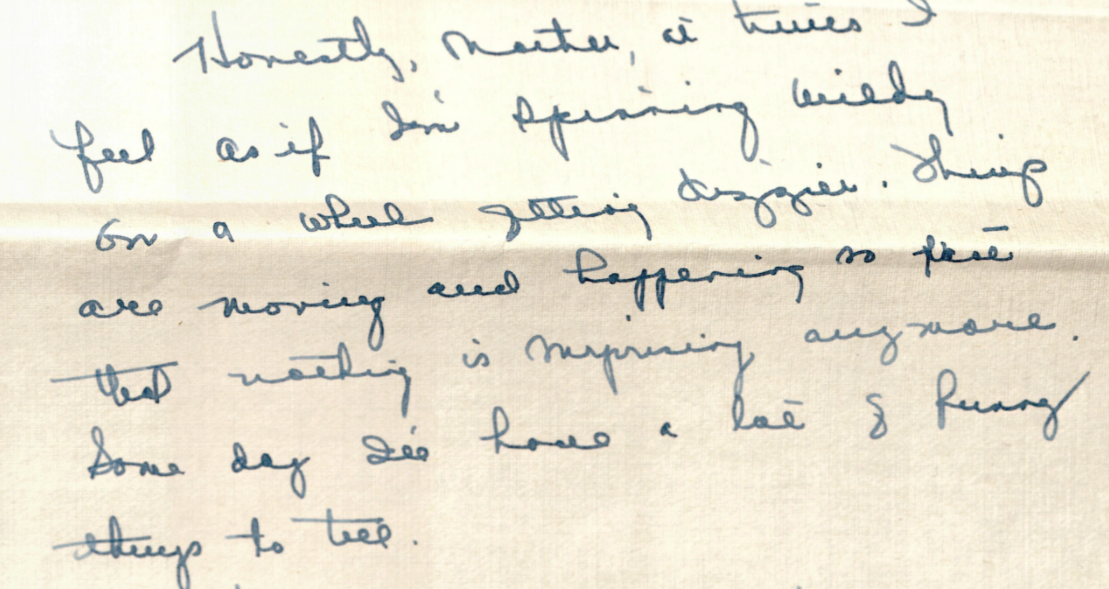 Honestly, Mother, at times I
feel as if I'm spinning wildly
on a wheel getting dizzier. Things
are moving and happening so fast
that nothing is surprising anymore.
Some day I'll have a lot of funny
things to tell.